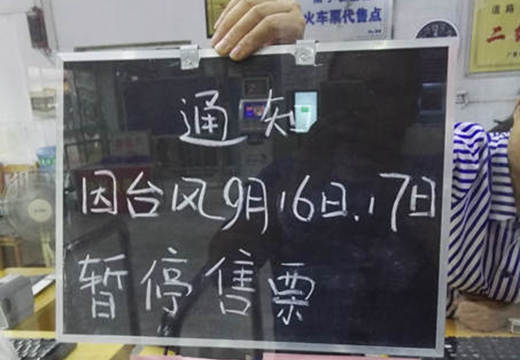 火车票代售点
道路
二级
通知
因台风9月16日、17日
暂停售票